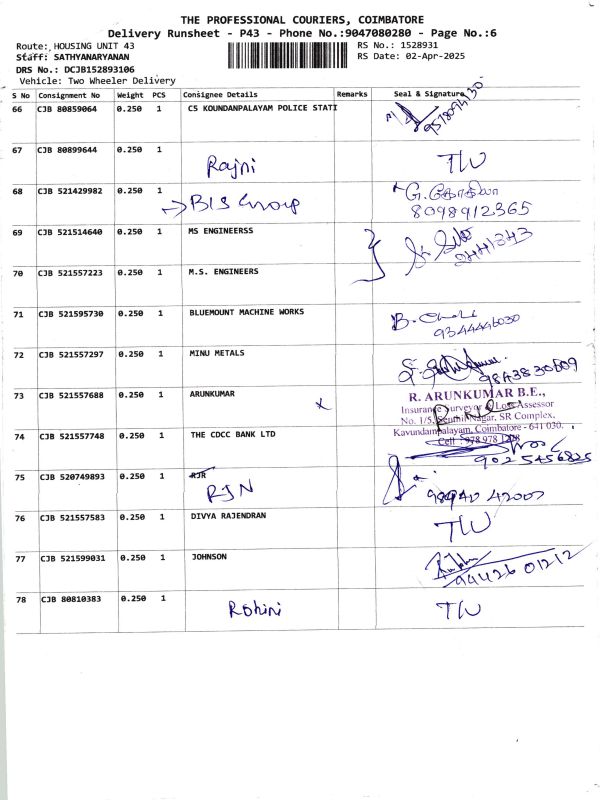 THE PROFESSIONAL COURIERS, COIMBATORE
Delivery Runsheet - P43 - Phone No.:9047080280 - Page No.:6
Route: HOUSING UNIT 43
RS No.: 1528931
Staff: SATHYANARYANAN
RS Date: 02-Apr-2025
DRS No.: DCJB152893106
Vehicle: Two Wheeler Delivery
S No Consignment No Weight PCS Consignee Details Remarks Seal & Signature
66 CJB 80859064 0.250 1 C5 KOUNDANPALAYAM POLICE STATI
67 CJB 80899644 0.250 1
Rajni
68 CJB 521429982 0.250 1
BIS Group
8098912365
69 CJB 521514640 0.250 1 MS ENGINEERSS
70 CJB 521557223 0.250 1 M.S. ENGINEERS
71 CJB 521595730 0.250 1 BLUEMOUNT MACHINE WORKS
9344446030
72 CJB 521557297 0.250 1 MINU METALS
9843830609
73 CJB 521557688 0.250 1 ARUNKUMAR x
R. ARUNKUMAR B.E.,
Insurance Surveyor & Loss Assessor
No. 1/5, Senthil Nagar, SR Complex,
Kavundampalayam, Coimbatore - 641 030.
Cell : 978 978
74 CJB 521557748 0.250 1 THE CDCC BANK LTD
9025456825
75 CJB 520749893 0.250 1 RJR
RJN
76 CJB 521557583 0.250 1 DIVYA RAJENDRAN
77 CJB 521599031 0.250 1 JOHNSON
94426 01212
78 CJB 80810383 0.250 1
Rohini